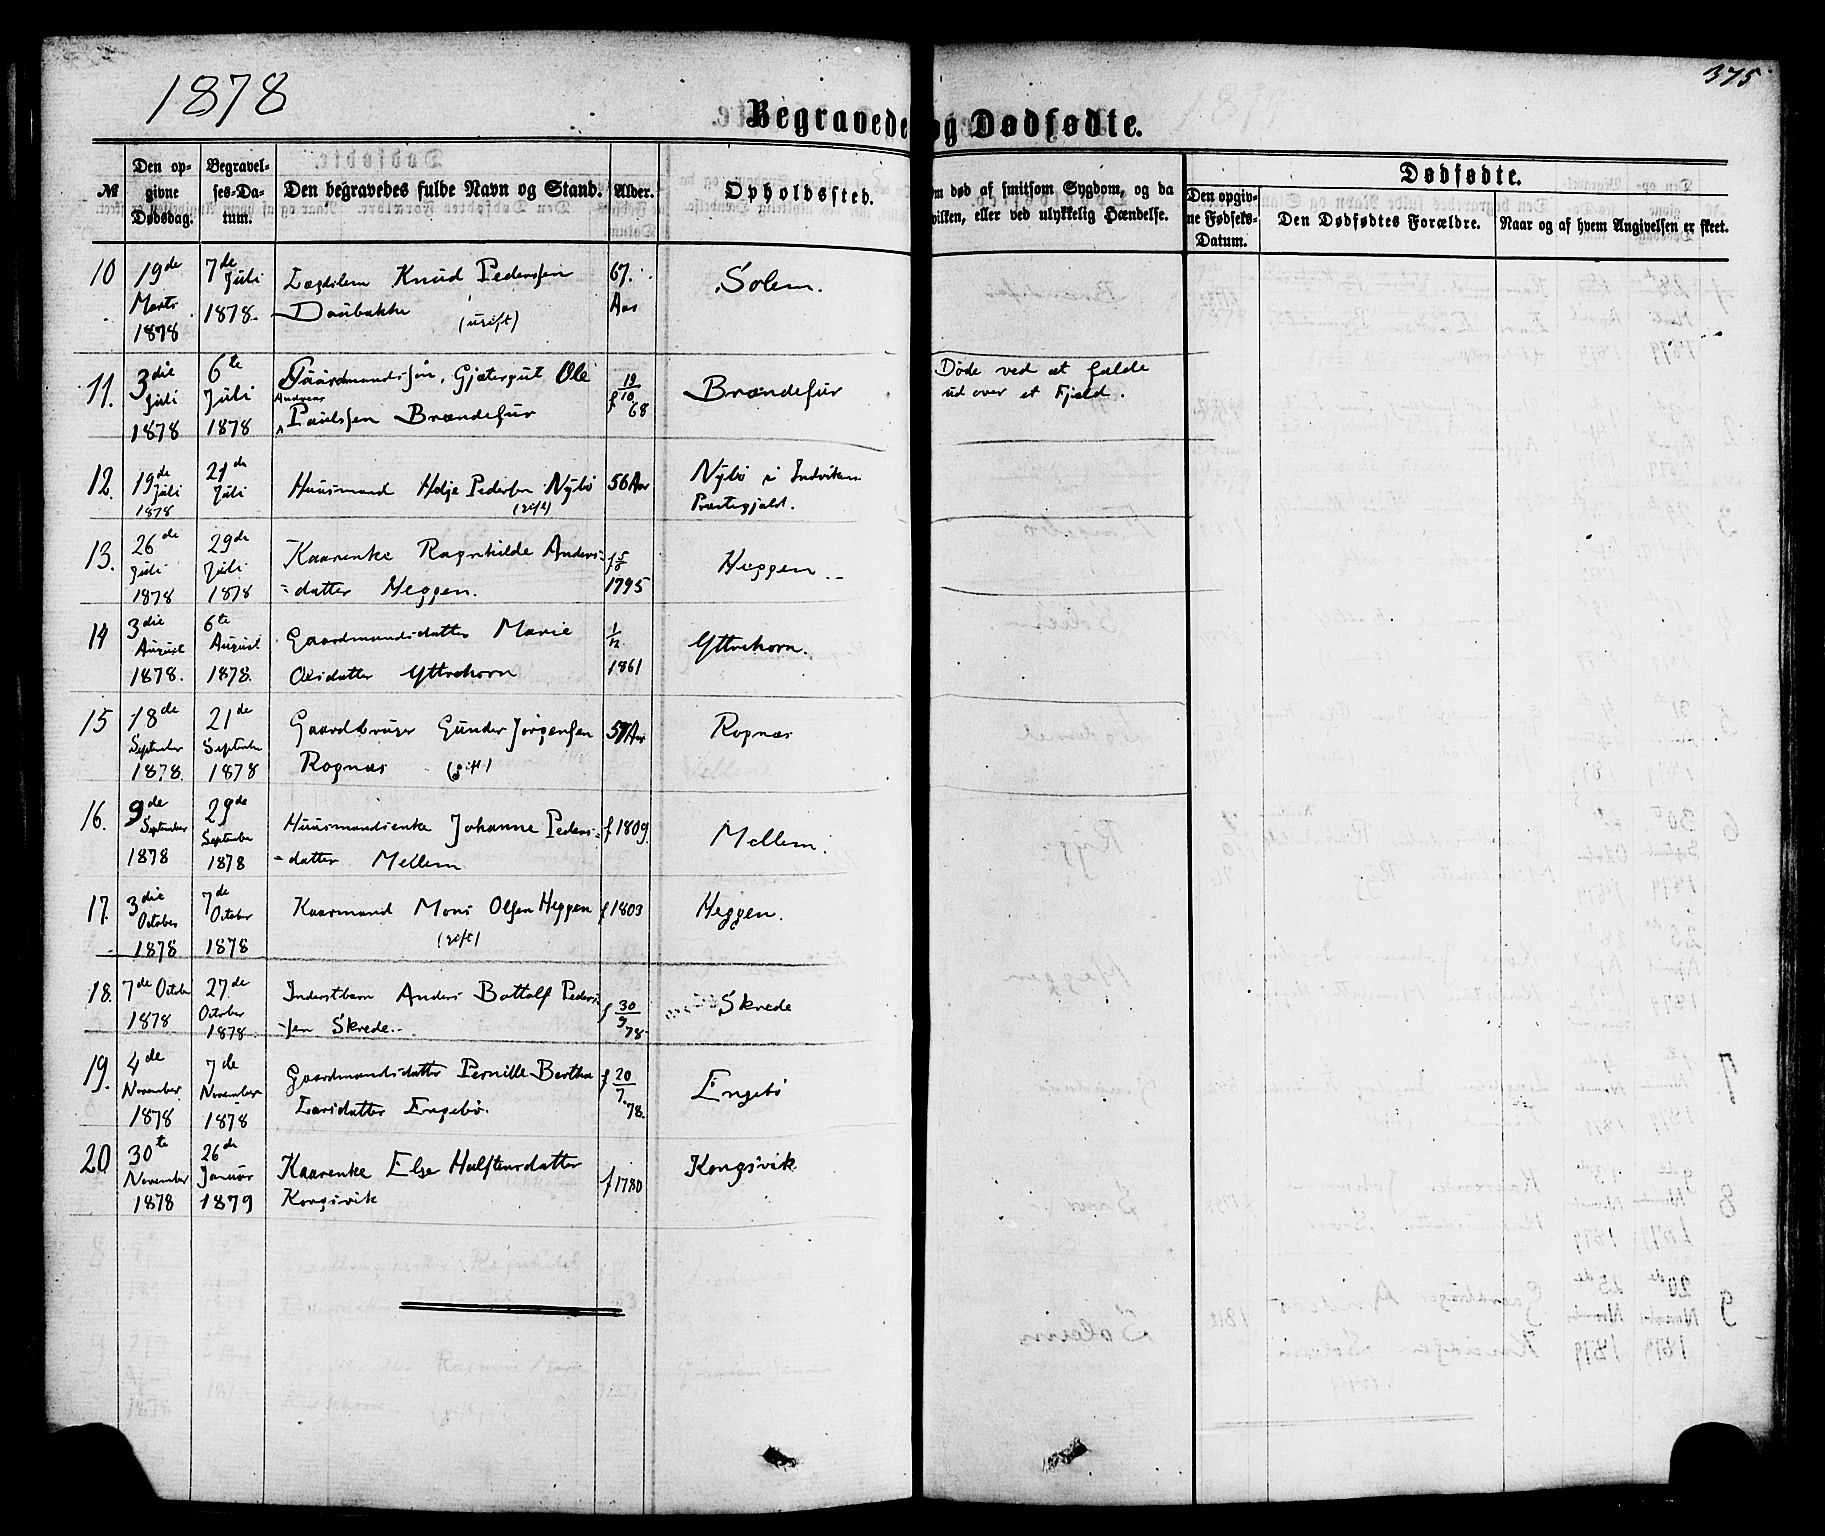 1878
375
Begravede og Dødfødte.
№
Den op-
givne
Dødsdag.
Begravel-
ses-Da-
tum.
Den begravedes fulde Navn og Stand.
Alder.
Opholdssted.
Om død af smitsom Sygdom, og da
hvilken, eller ved ulykkelig Hændelse.
Dødfødte.
Den opgiv-
ne Fødsels-
Datum.
Den Dødfødtes Forældre.
Naar og af hvem Angivelsen er skeet.
10
19de
Marts
1878
7de
Juli
1878.
Lægdslem Knud Pederssen
Daubakke (ugift)
67.
Aar
Solem.
11.
3die
Juli
1878
6te
Juli
1878
Gaardmandssøn, Gjætergut Ole
Andreas
Paulssen Brændefur
f 19/10 68
Brændefur
Døde ved at falde
ud over et Fjeld.
12.
19de
Juli
1878
21de
Juli
Huusmand Helje Pedersen Nybø
(gift)
56 Aar
Nybø i Indviken
Præstegjeld.
13.
26de
Juli
1878
29de
Juli
1878
Kaarenke Ragnhilde Anders-
datter Heggen.
1795
Heggen
14
3die
August
1878.
6te
August
1878.
Gaardmandsdatter Marie
Olsdatter Yttrehorn
1/12
1861
Yttrehorn.
15
18de
September
1878.
21de
September
1878
Gaardbruger Gunder Jørgensen
Rognæs (gift)
57 Aar
Rognæs
16.
9de
September
1878
29de
September
1878
Huusmandsenke Johanne Peders-
datter Mellem
f 1809.
Mellem.
17.
3die
October
1878
7de
October
1878
Kaarmand Mons Olsen Heggen
(gift)
f 1803
Heggen.
18.
7de October
1878
27de
October
1878
Inderstbarn Anders Bottolf Peders-
sen Skrede
f 30/9 78
Skrede
19.
4de
November
1878
7de
November
1878
Gaardmandsdatter Pernille Bertha
Larsdatter Engebø.
f 20/7 78.
Engebø
20
30te
November
1878
26de
Januar
1879
Kaarenke Else Halftensdatter
Kongsvik
f 1780
Kongsvik